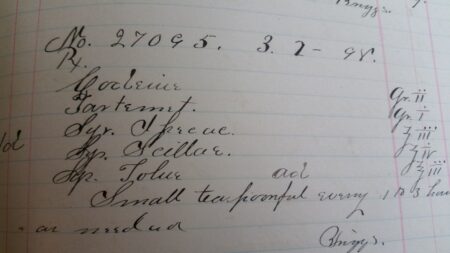 Briggs.
No. 27095. 3. 2 - 98.
Rx.
Codeine Gr. ii
Tart emet. Gr. i
Syr. Ipecac. ʒ iii
Syr. Scillae. ʒ iv
Syr. Tolue ad ʒ iii
Small teaspoonful every 1 to 3 hou
as needed
Briggs.